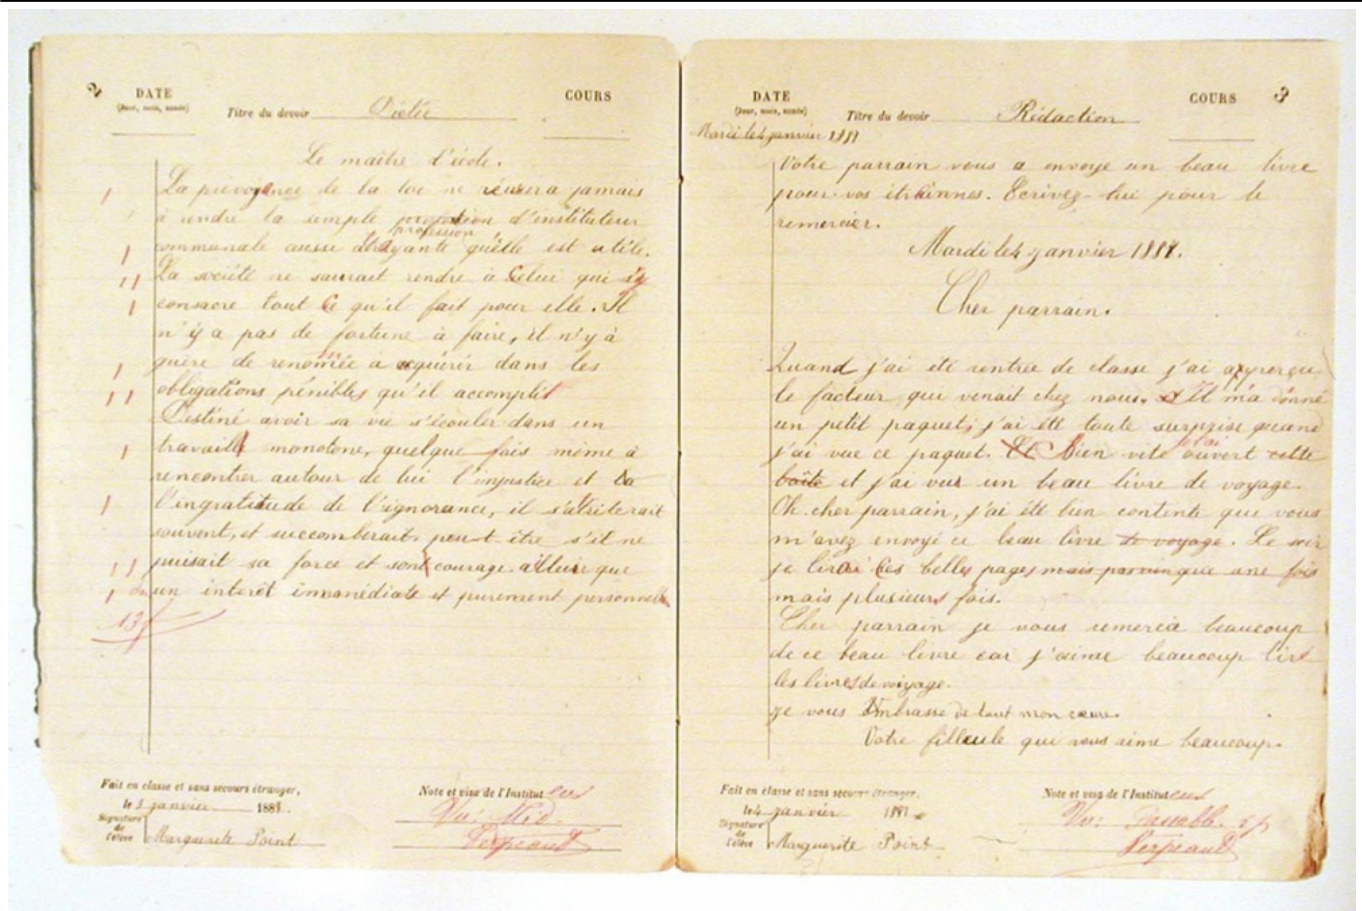 2
DATE
(Jour, mois, année)
Titre du devoir Dictée
COURS
Le maître d'école.
La prévoyance de la loi ne réusira jamais
à rendre la simple profession d'instituteur
profession
communale ausse atrayante qu'elle est utile.
La société ne saurait rendre à Celui qui s'y
consacre tout Ce qu'il fait pour elle. Il
n'y a pas de fortune à faire, il n'y à
guère de renomée a aquérir dans les
obligations pénibles qu'il accomplit
Destiné avoir sa vie s'écouler dans un
travaille monotone, quelque fois même à
rencontrer autour de lui l'injustice et la
l'ingratitude de l'ignorance, il s'atristerait
souvent, et succomberait peut être s'il ne
puisait sa force et sont courage alleur que
dans un interêt immédiate et purement personnelle
13
Fait en classe et sans secours étranger,
le 3 janvier 1881.
Signature
de
l'élève
Marguerite Point
Note et visa de l'Instituteur
Vu:
Serpeault
3
DATE
(Jour, mois, année)
Mardi le 4 janvier 1881
Titre du devoir Rédaction
COURS
Votre parrain vous a envoye un beau livre
pour vos étrennes. Ecrivez-lui pour le
remercier.
Mardi le 4 janvier 1881.
Cher parrain.
Quand j'ai été rentrée de classe j'ai apperçu
le facteur qui venait chez nous. Il m'a donné
un petit paquet; j'ai été toute surprise quand
j'ai vue ce paquet. Et Bien vite j'ai ouvert cette
boîte et j'ai vu un beau livre de voyage.
Oh cher parrain, j'ai été bien contente que vous
m'avez envoyé ce beau livre de voyage. Le soir
je lirai Ces belles pages mais pas une fois
mais plusieurs fois.
Cher parrain je vous remercie beaucoup
de ce beau livre car j'aime beaucoup lire
les livres de voyage.
Je vous Embrasse de tout mon cœur.
Votre filleule qui vous aime beaucoup.
Fait en classe et sans secours étranger,
le 4 janvier 1881
Signature
de
l'élève
Marguerite Point
Note et visa de l'Instituteur
Vu: Passable
Serpeault